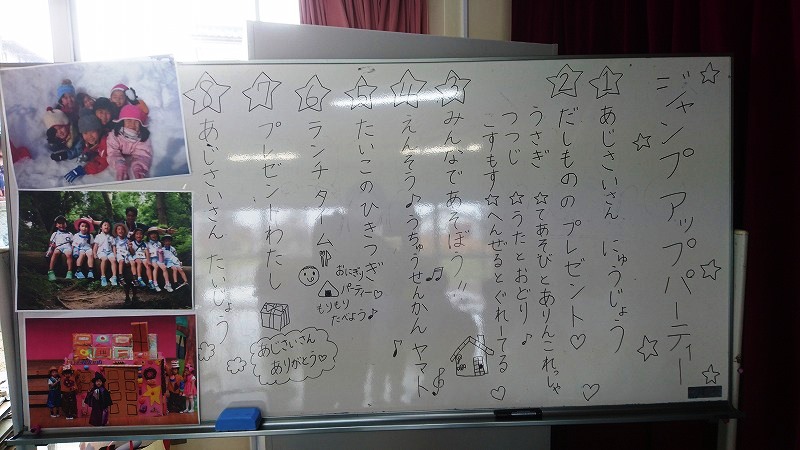 ジャンプアップパーティー
1 あじさいさん にゅうじょう
2 だしもののプレゼント♡
うさぎ ☆てあそびとありんこれっしゃ
つつじ ☆うたとおどり♪
こすもす ☆へんぜるとぐれーてる♡
3 みんなであそぼう!!
4 えんそう♪うちゅうせんかん ヤマト
5 たいこのひきつぎ
6 ランチタイム
おにぎり
パーティー♡
もりもり
たべよう♪
7 プレゼントわたし
あじさいさん
ありがとう♡
8 あじさいさん たいじょう